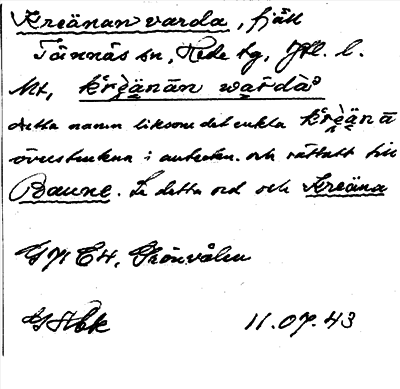 Kreänan varda, fjäll
Tännäs sn, Hede tg, Jtl. l.
Mt, kr̀èä̠nān wa̠r̄dàᵒ
detta namn liksom det enkla kr̀èä̠nā
överstrukna i anteckn. och rättatt till
Baune. Se detta ord och Kreäna
Grönvålen
11.07.43